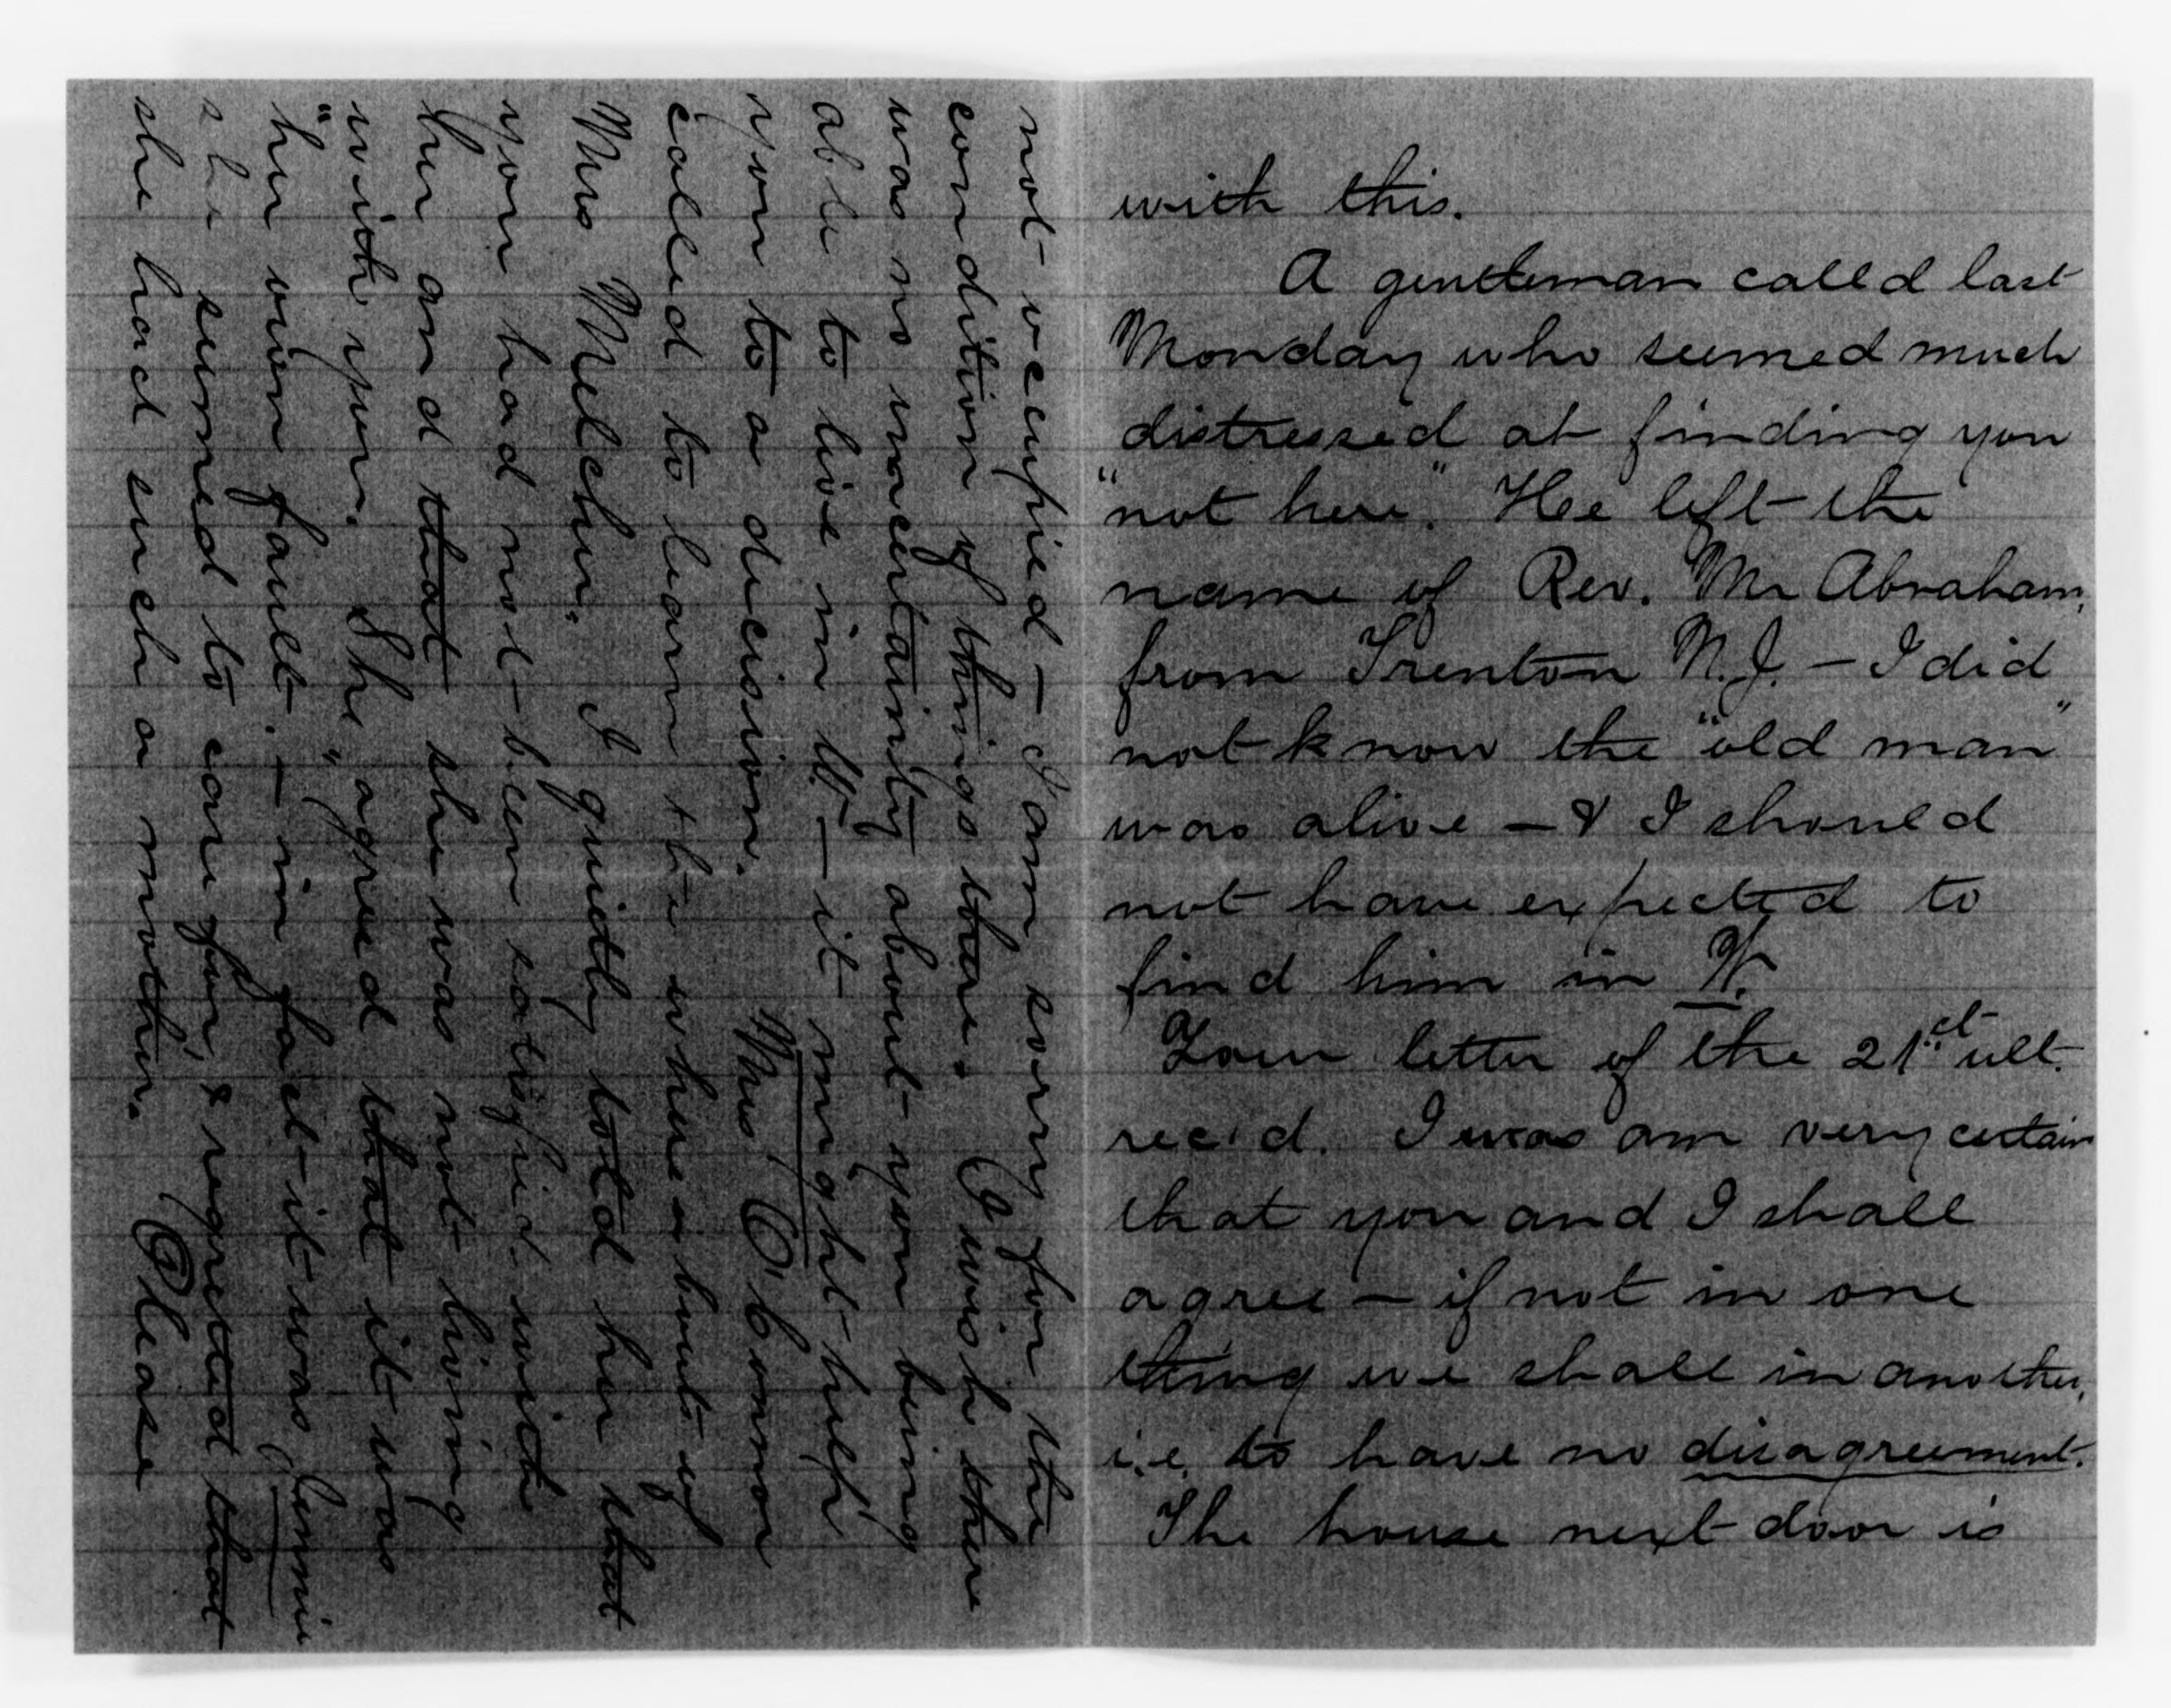 with this.
A gentleman called last
Monday who seemed much
distressed at finding you
"not here". Hee left the
name of Rev. Mr Abraham,
from Trenton N.J. — I did
not know the "old man"
was alive — & I should
not have expected to
find him in W.
Your letter of the 21st ult.
rec'd. I was am very certain
that you and I shall
agree — if not in one
thing we shall in another,
i.e. to have no disagreement.
The house next door is
not occupied — I am sorry for the
condition of things there. I wish there
was no uncertainty about you being
able to live in it — it might help
you to a decision. Mrs O'Connor
called to learn the whereabouts of
Mrs Melcher. I quietly told her that
you had not been satisfied with
her and that she was not living
with you. She "agreed that it was
her own fault" — in fact it was,
she seemed to care for, & regretted that
she had such a mother. Please